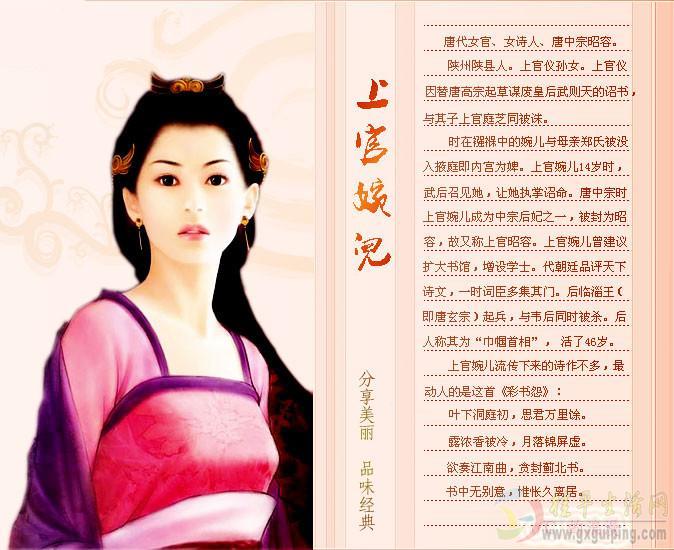 上官婉儿
分享美丽 品味经典
唐代女官、女诗人、唐中宗昭容。
陕州陕县人。上官仪孙女。上官仪
因替唐高宗起草谋废皇后武则天的诏书，
与其子上官庭芝同被诛。
时在襁褓中的婉儿与母亲郑氏被没
入掖庭即内宫为婢。上官婉儿14岁时，
武后召见她，让她执掌诏命。唐中宗时
上官婉儿成为中宗后妃之一，被封为昭
容，故又称上官昭容。上官婉儿曾建议
扩大书馆，增设学士。代朝廷品评天下
诗文，一时词臣多集其门。后临淄王（
即唐玄宗）起兵，与韦后同时被杀。后
人称其为“巾帼首相”， 活了46岁。
上官婉儿流传下来的诗作不多，最
动人的是这首《彩书怨》：
叶下洞庭初，思君万里馀。
露浓香被冷，月落锦屏虚。
欲奏江南曲，贪封蓟北书。
书中无别意，惟怅久离居。
桂平生活网
www.gxguiping.com